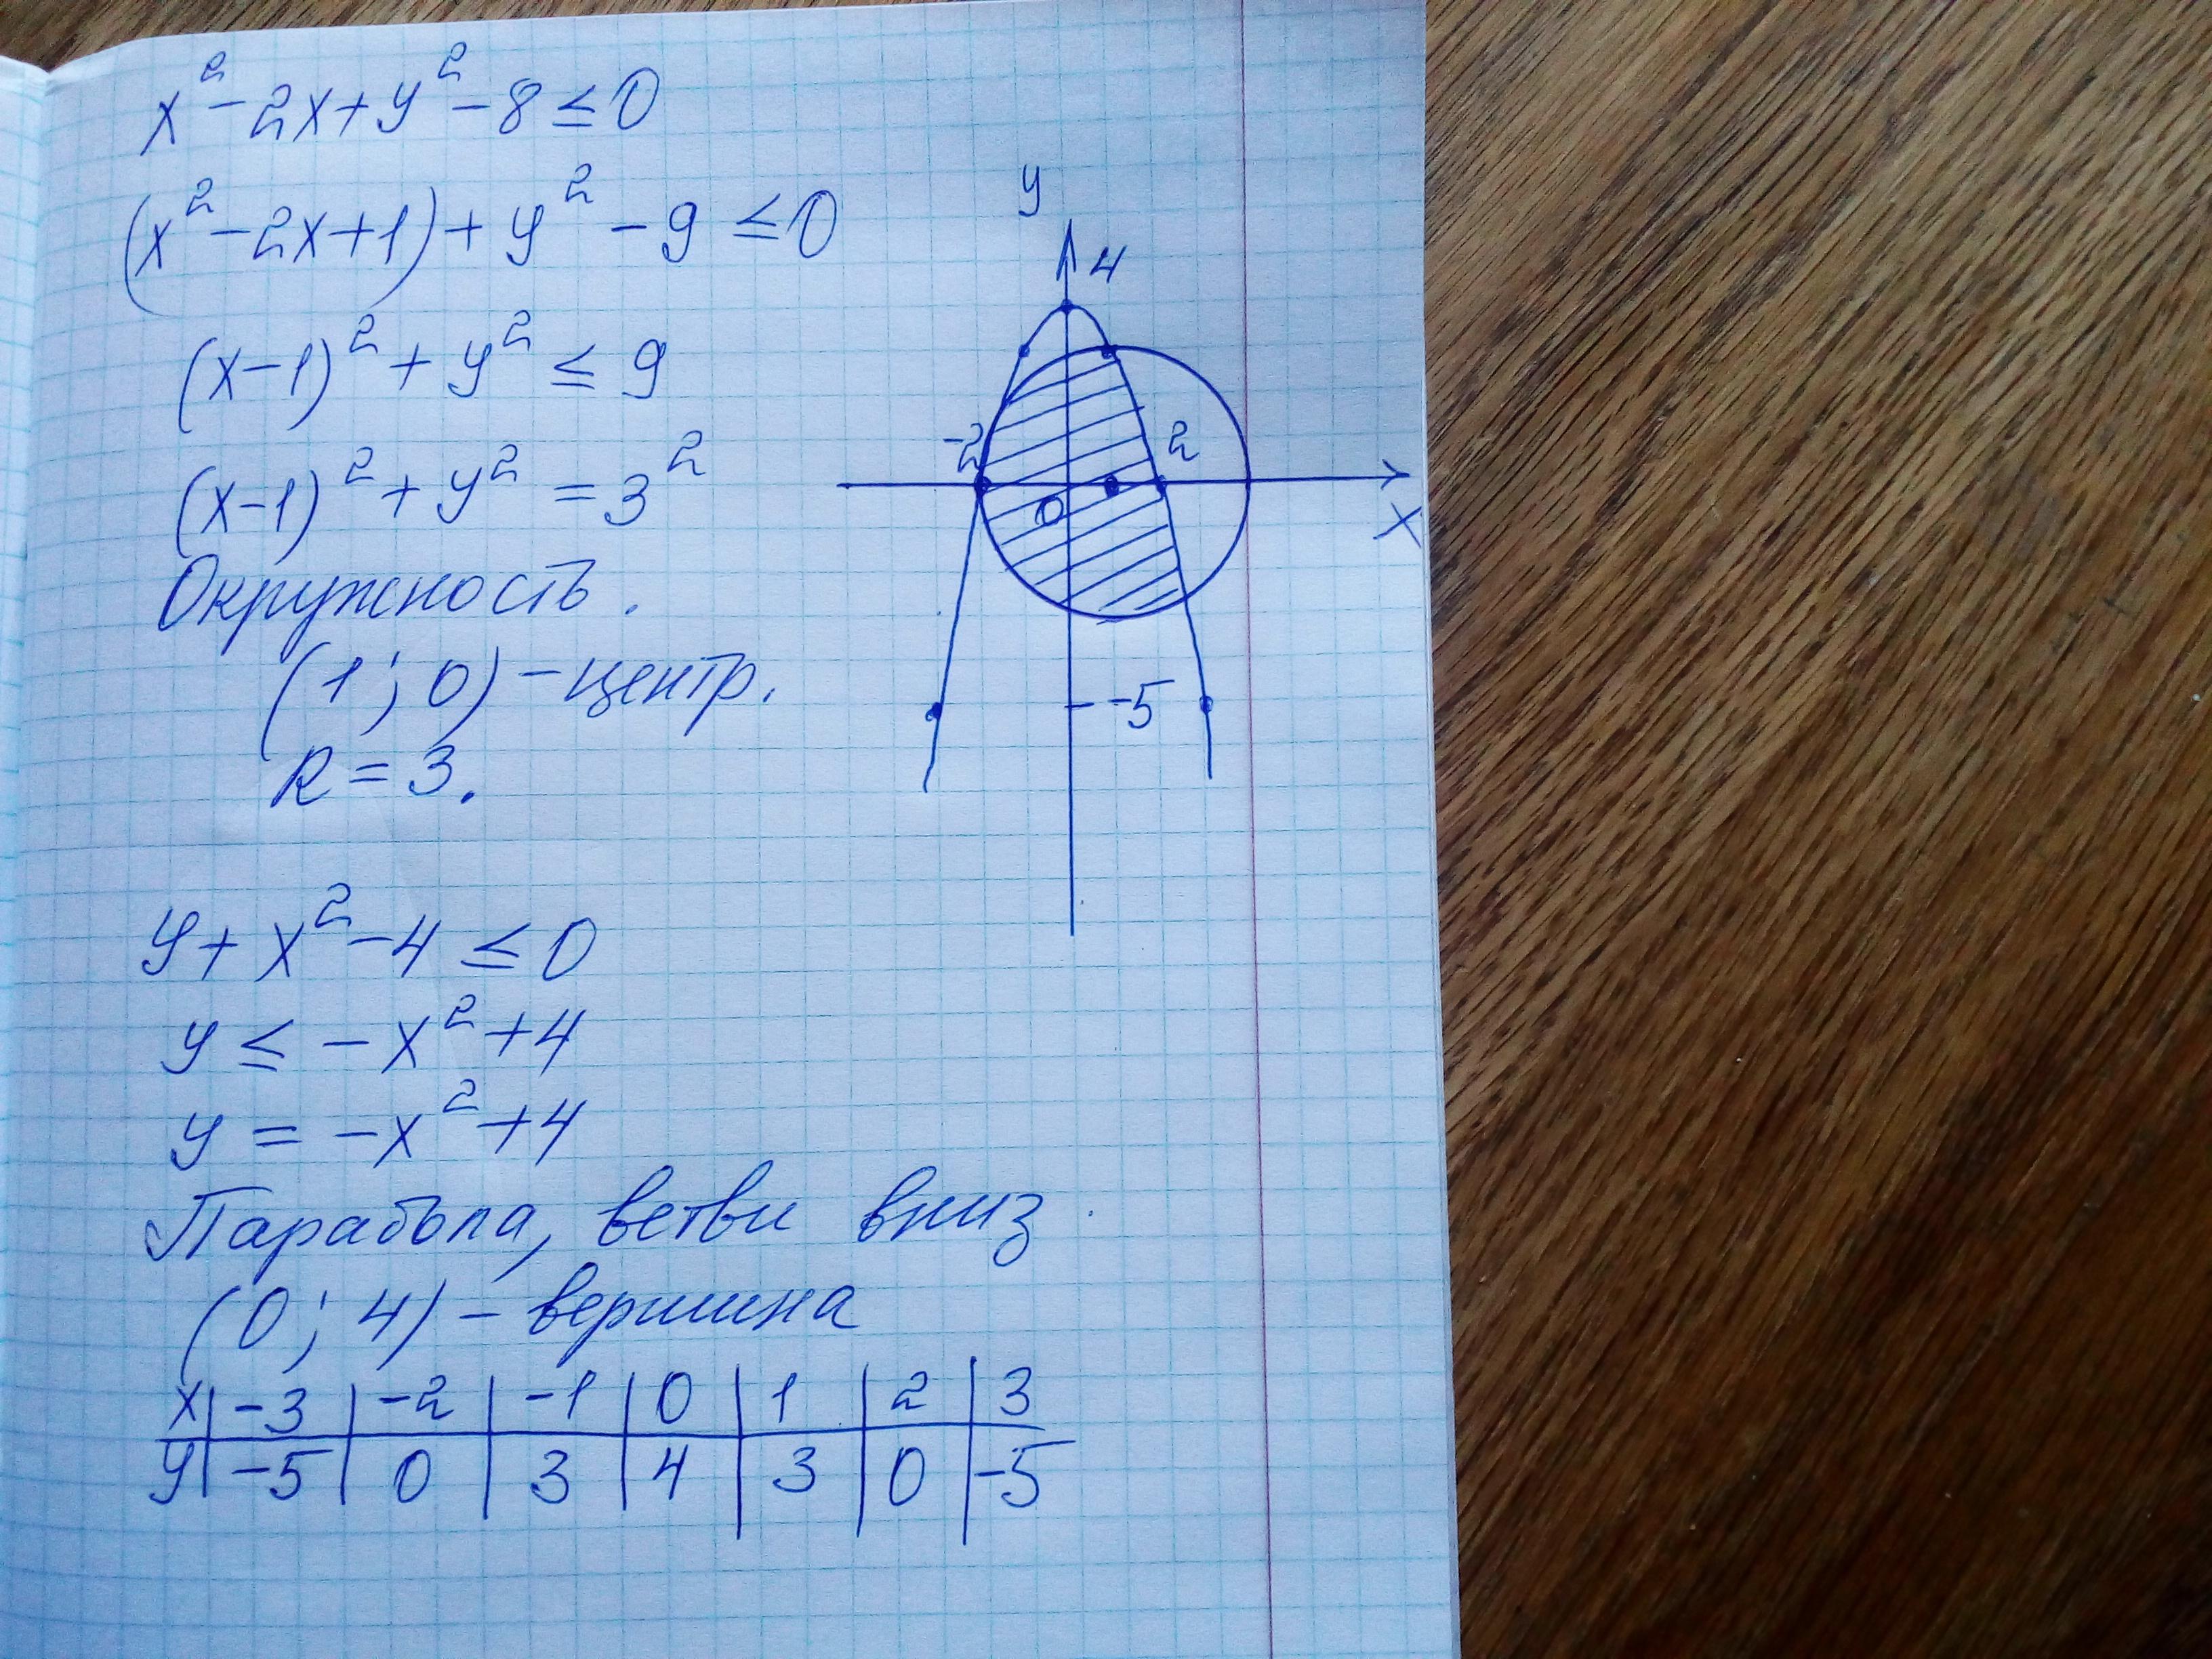 x² - 2x + y² - 8 ≤ 0
(x² - 2x + 1) + y² - 9 ≤ 0
(x - 1)² + y² ≤ 9
(x - 1)² + y² = 3²
Окружность.
(1; 0) - центр.
R = 3.
y
4
-2
2
0
x
-5
y + x² - 4 ≤ 0
y ≤ - x² + 4
y = - x² + 4
Парабола, ветви вниз
(0; 4) - вершина
x | -3 | -2 | -1 | 0 | 1 | 2 | 3
y | -5 | 0 | 3 | 4 | 3 | 0 | -5